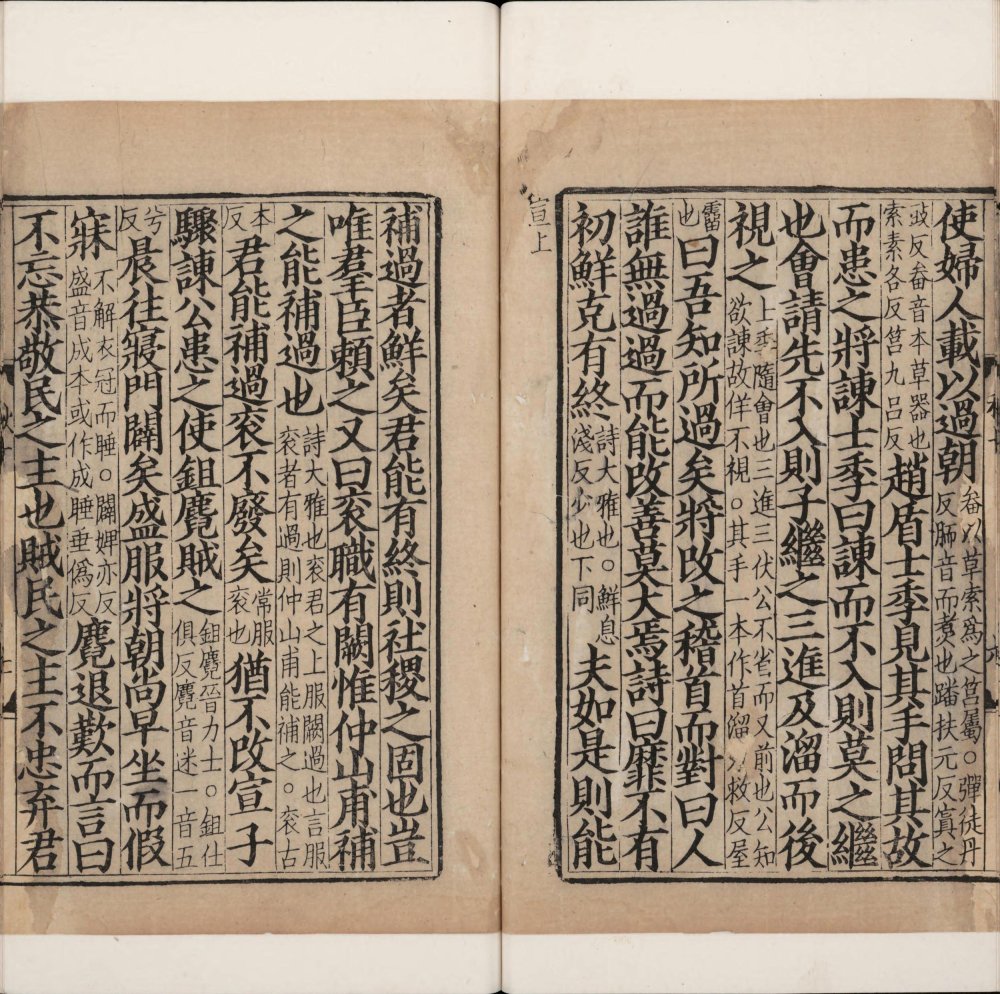 使婦人載以過朝畚以草索爲之筥屬。彈徒丹反胹音而煑也蹯扶元反寘之
豉反畚音本草器也索素各反筥九吕反趙盾士季見其手問其故
而患之將諫士季曰諫而不入則莫之繼
也會請先不入則子繼之三進及溜而後
視之士季隨會也三進三伏公不省而又前也公知欲諫故佯不視。其手一本作首溜力救反屋
霤也曰吾知所過矣將改之稽首而對曰人
誰無過過而能改善莫大焉詩曰靡不有
初鮮克有終詩大雅也。鮮息淺反少也下同夫如是則能
宣上
補過者鮮矣君能有終則社稷之固也豈
唯羣臣頼之又曰衮職有闕惟仲山甫補
之能補過也詩大雅也衮君之上服闕過也言服衮者有過則仲山甫能補之。衮古
本反君能補過衮不廢矣常服衮也猶不改宣子
驟諫公患之使鉏麑賊之鉏麑晉力士。鉏仕俱反麑音迷一音五
兮反晨往寢門闢矣盛服將朝尚早坐而假
寐不解衣冠而睡。闢婢亦反盛音成本或作成睡垂僞反麑退歎而言曰
不忘恭敬民之主也賊民之主不忠弃君